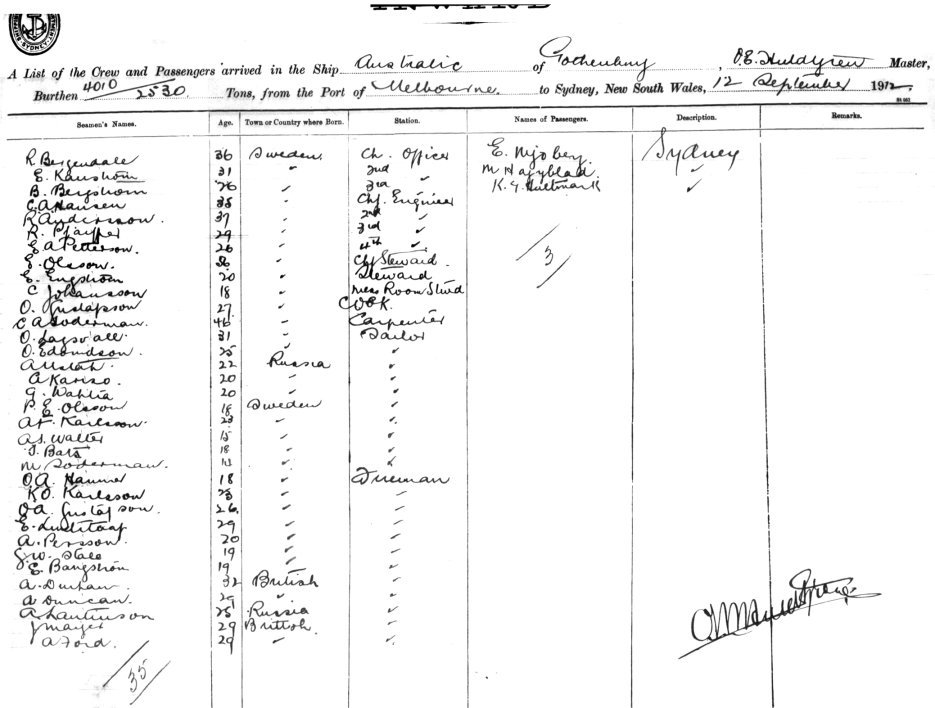 INWARD
A List of the Crew and Passengers arrived in the Ship Australic of Gothenburg, O.E. Huldgren Master,
Burthen 4010 2530 Tons, from the Port of Melbourne to Sydney, New South Wales, 12 September 1912.
Seamen's Names. Age. Town or Country where Born. Station. Names of Passengers. Description. Remarks.
R Bergendale 36 Sweden Ch. Officer E. Njobey Sydney
E. 31 " 2nd " M Hagyblad "
B. Bergstrom 26 " 3rd " K. G. Hultmark "
C. A Hansen 35 " Chf. Engineer
R Andersson. 37 " 2nd "
R. 29 " 3rd "
E A Petterson. 26 " 4th " 3
E. Olsson. 36 " Chf Steward
E. Engstrom 20 " Steward
C Johansson 18 " Mess Room Stwd
O. Gustafson 27 " Cook
C A Soderman. 46 " Carpenter
O. 31 " Sailor
O. Edmundson 25 " "
22 Russia "
A Kariso. 20 " "
G. Wahlia 20 " "
P. E. Olsson 18 Sweden "
A F. Karlsson. 23 " "
A. S. Walter 15 " "
J. Bats 18 " "
M Soderman. " "
O A. Hammer 18 " Fireman
K O. Karlsson 23 " "
O A. Gustafson. 26. " "
E. 29 " "
A. Persson. 20 " "
G. W. Stale 19 " "
E. Bangstrom 19 " "
A. Durhan. 32 British "
A Duncan. 29 " "
A 25 Russia "
J Mayer 29 British "
A Ford. 29 " "
35